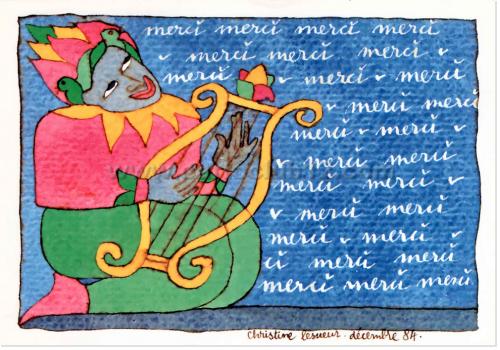 merci merci merci merci
merci merci merci
merci merci merci
merci merci
merci merci
merci merci
merci merci
merci merci
merci merci
ci merci merci
merci merci merci
Christine Lesueur. décembre 84.